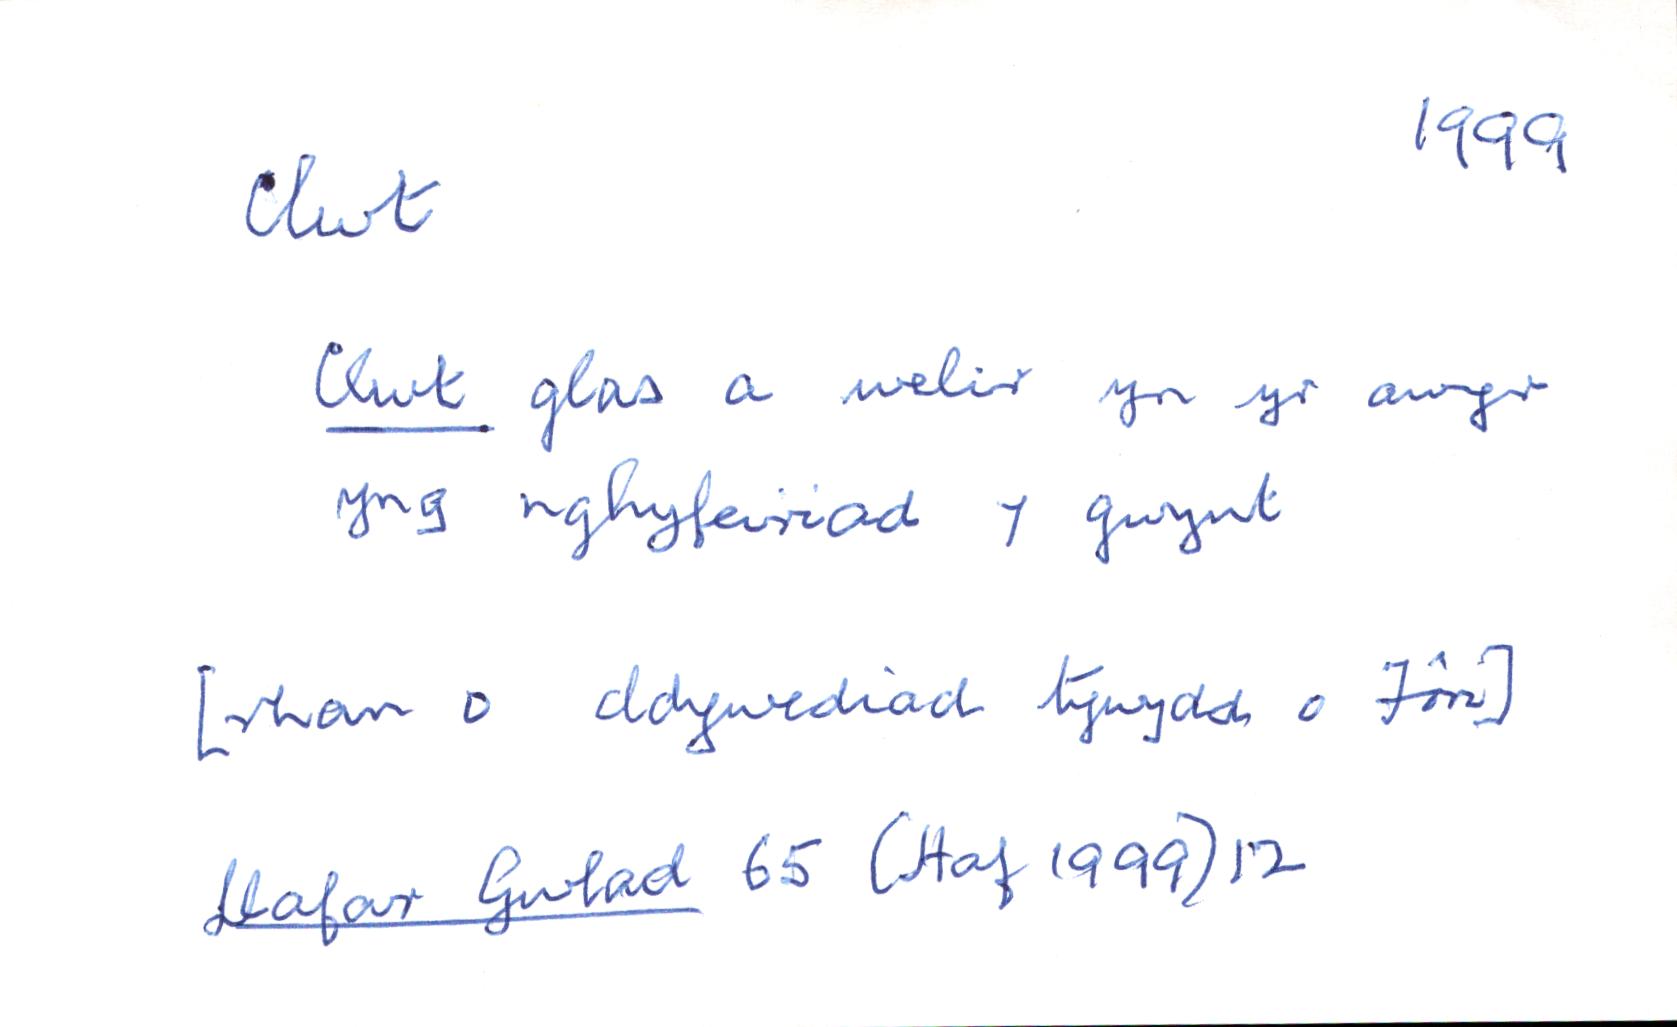 1999
Clwt
Clwt glas a welir yn yr awyr
yng nghyfeiriad y gwynt
[rhan o ddywediad tywydd o Fôn]
Llafar Gwlad 65 (Haf 1999) 12